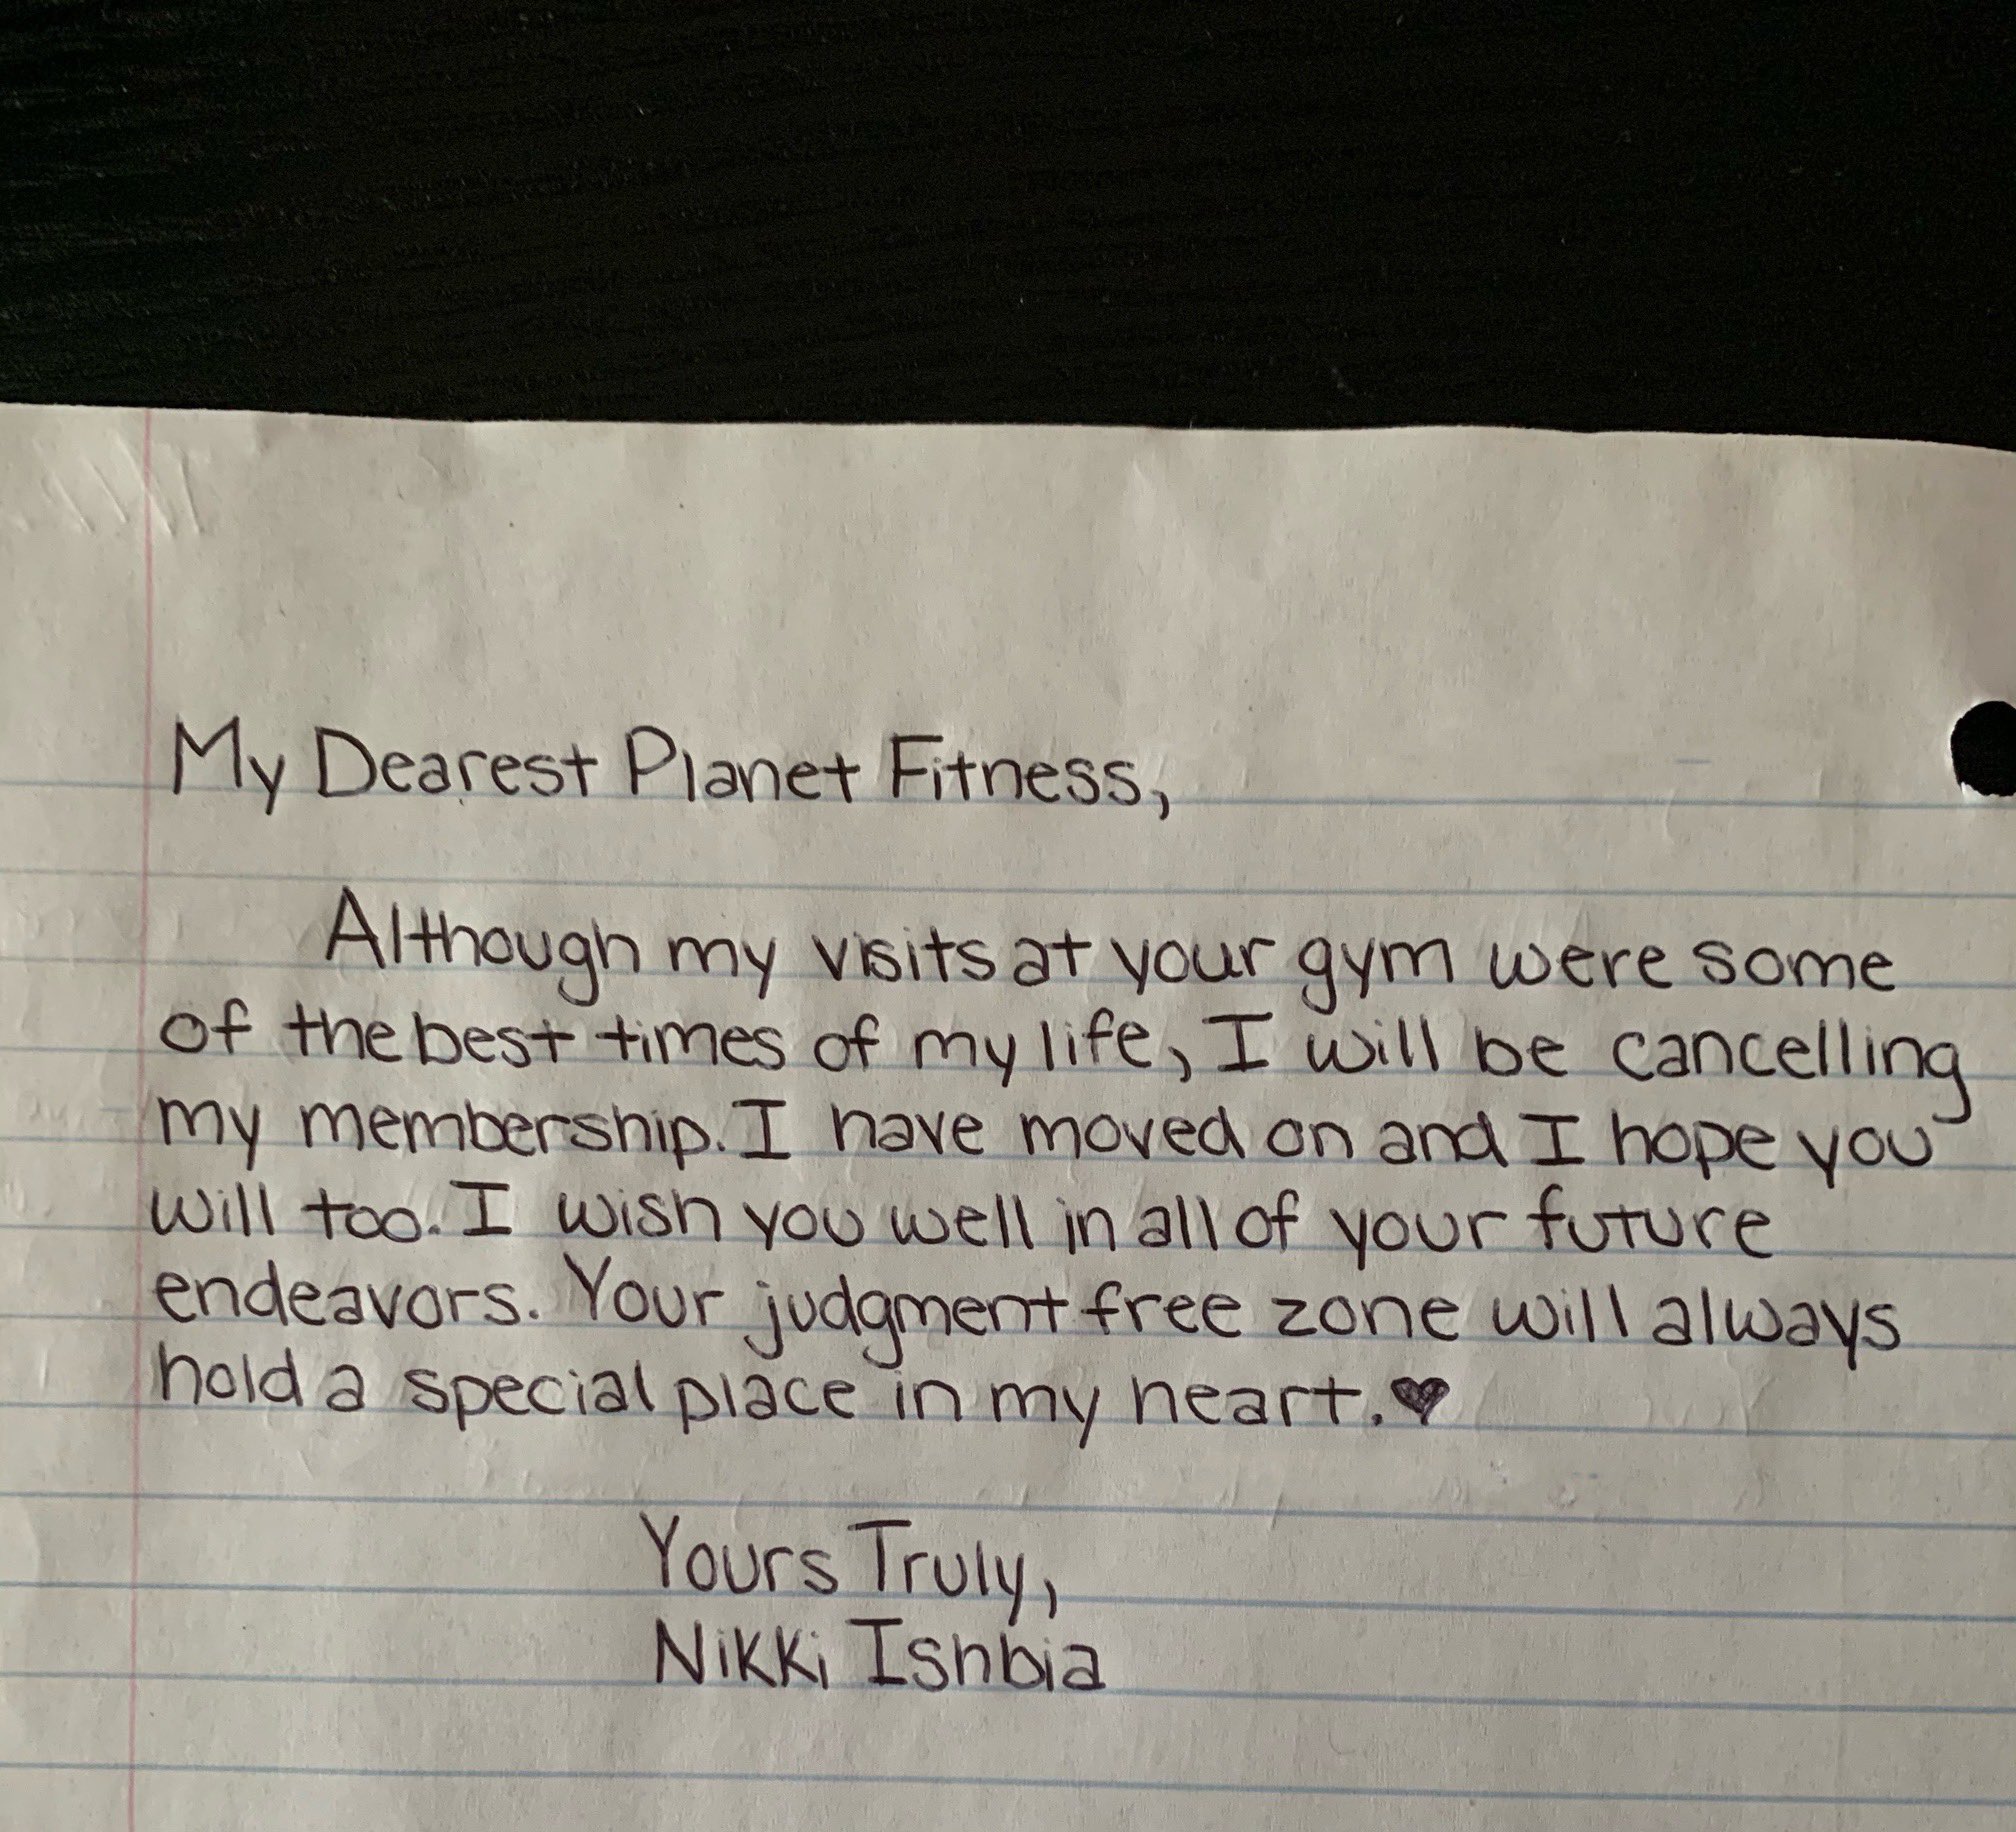 My Dearest Planet Fitness,
Although my visits at your gym were some
of the best times of my life, I will be cancelling
my membership. I have moved on and I hope you
will too. I wish you well in all of your future
endeavors. Your judgment free zone will always
hold a special place in my heart.♥
Yours Truly,
Nikki Ishbia